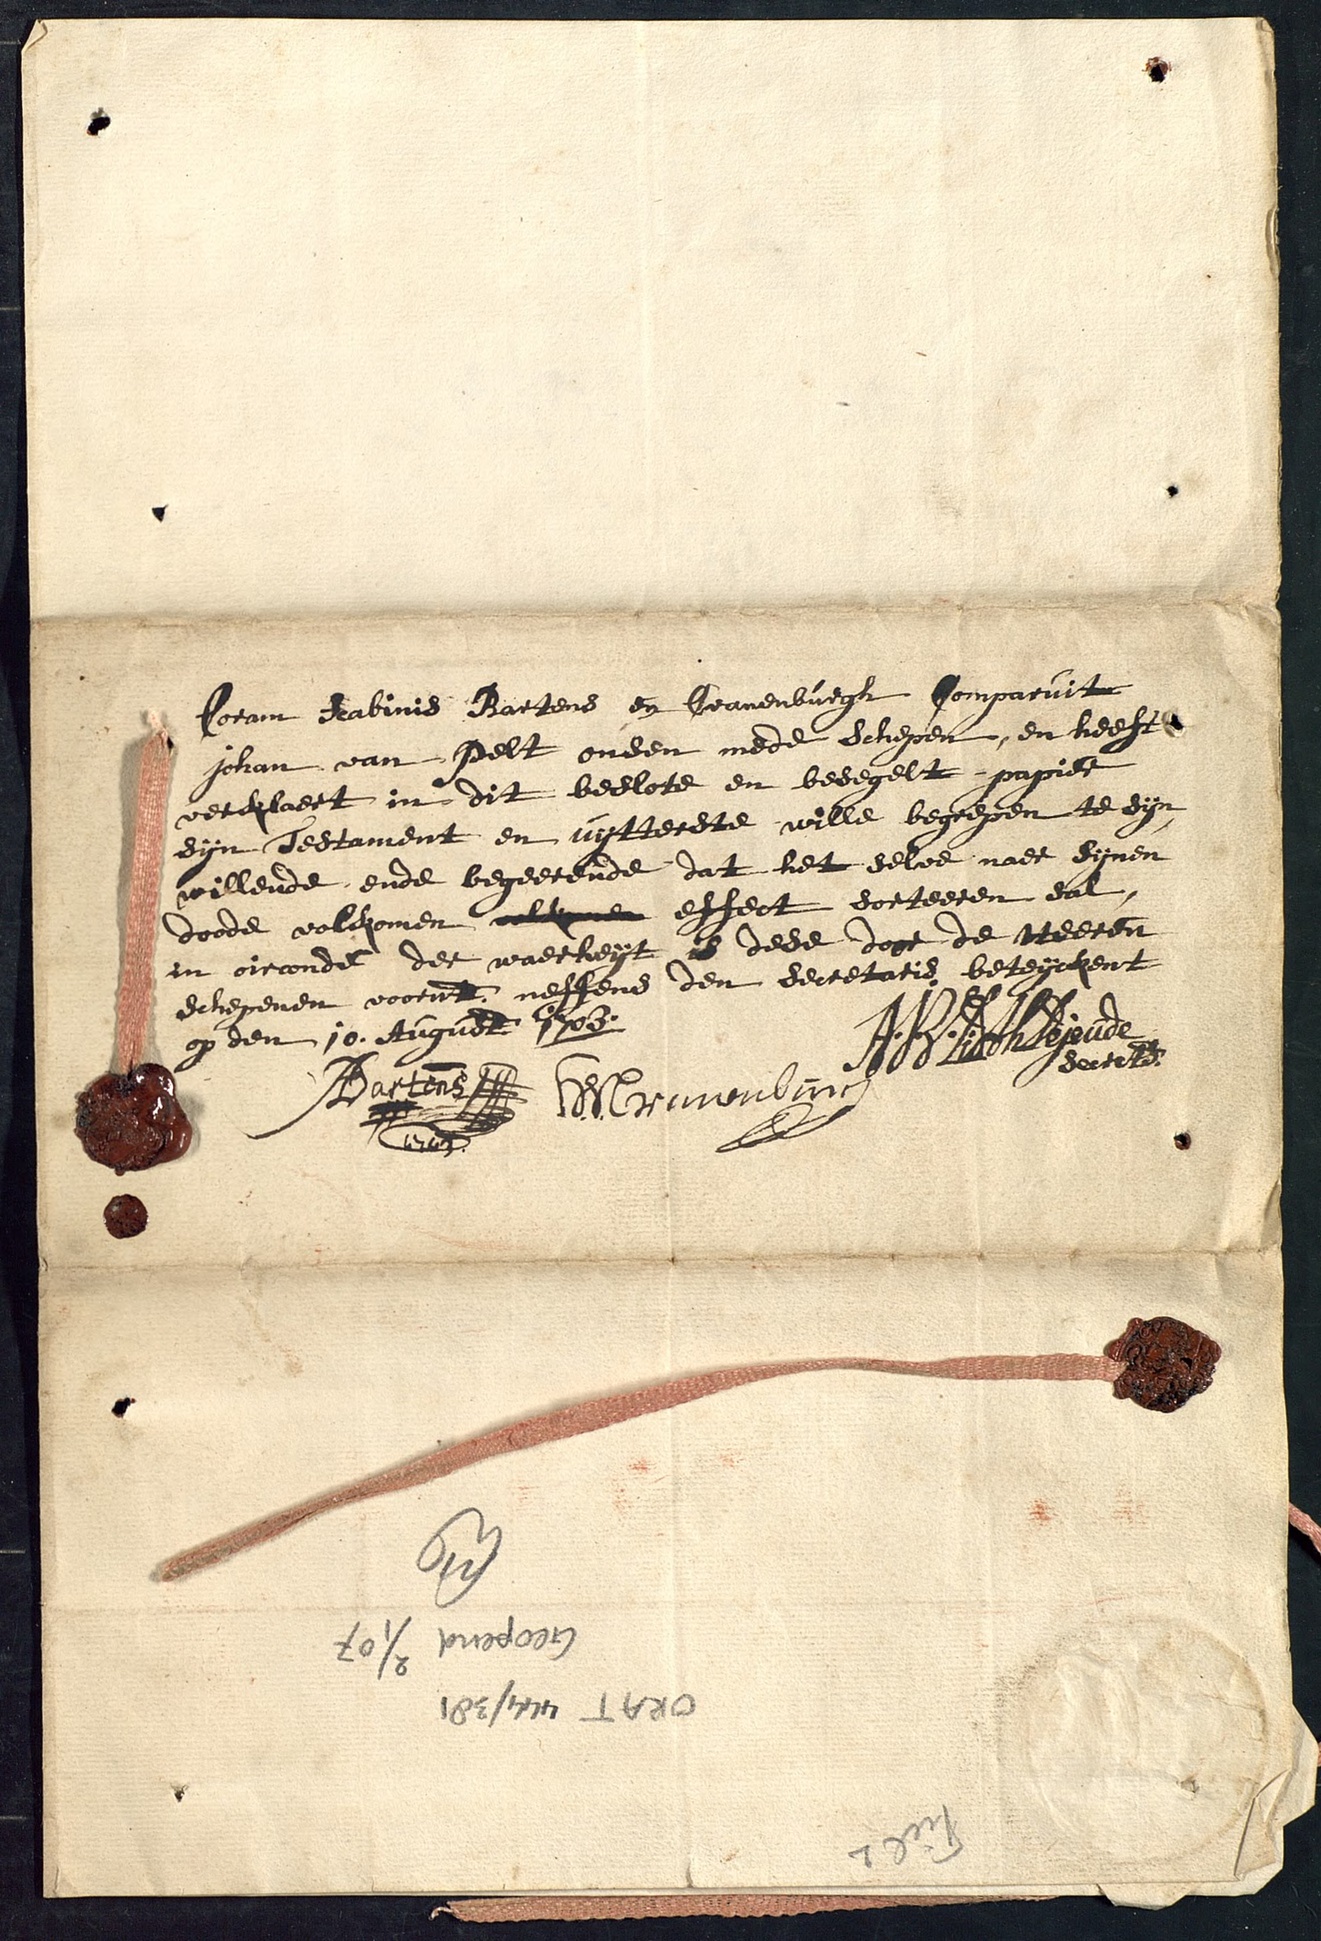 Coram Scabinis Bartens en Cranenburgh Comparuit
johan van Pelt onsen mede Schepen, en heeft
verklaert in dit beslote en besegelt papier
sijn Testament en uÿtterste wille begrepen te sijn,
willende ende begeerende dat het selve naer sijnen
doode volkomen effect sorteeren sal,
in oirconde der waerheÿt is dese door de Heeren
schepenen voornt. neffens den Secretaris beteÿckent
op den 10. August 1703.
Bartens
Cranenburg
Secrets.
Geopend 2/1 07
ORAT 444/381
Tiel